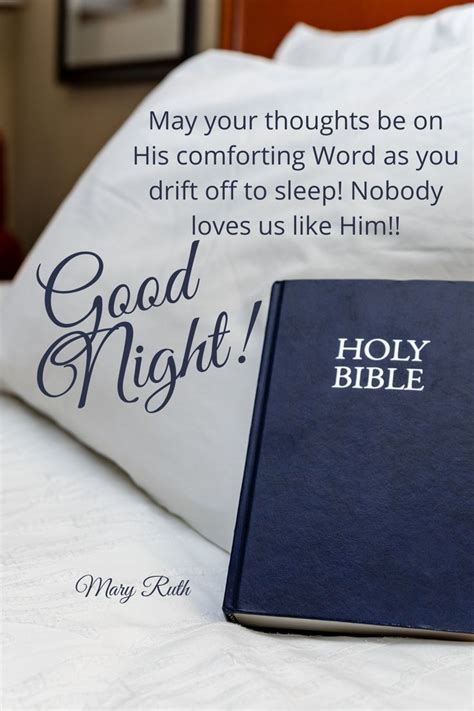 May your thoughts be on
His comforting Word as you
drift off to sleep! Nobody
loves us like Him!!
Good
Night!
HOLY
BIBLE
Mary Ruth